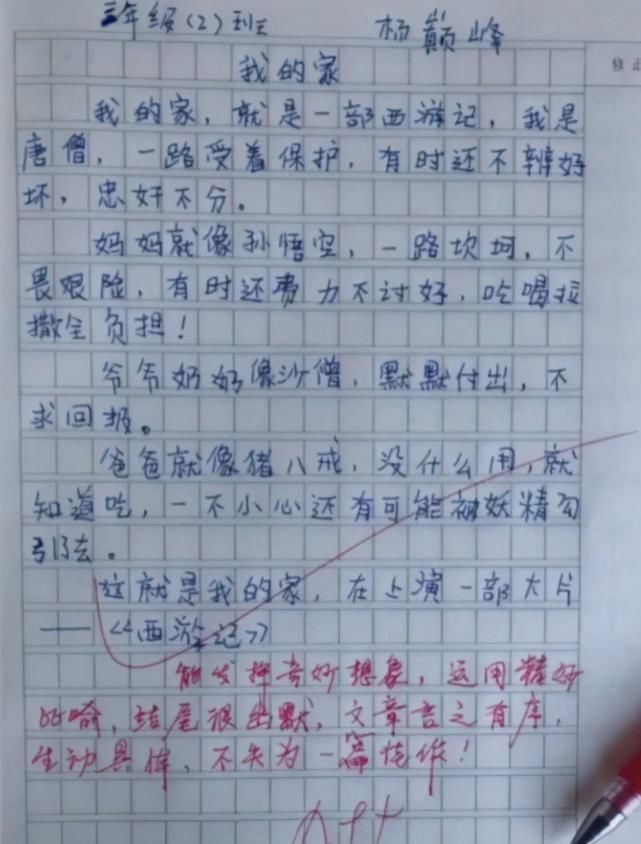 三年级(2)班 杨巅峰
修正
我的家
我的家，就是一部西游记，我是
唐僧，一路受着保护，有时还不辨好
坏，忠奸不分。
妈妈就像孙悟空，一路坎坷，不
畏艰险，有时还费力不讨好，吃喝拉
撒全负担！
爷爷奶奶像沙僧，默默付出，不
求回报。
爸爸就像猪八戒，没什么用，就
知道吃，一不小心还有可能被妖精勾
引了去。
这就是我的家，在上演一部大片
——《西游记》
能发挥奇妙想象，运用精妙
比喻，结尾很幽默，文章言之有序，
生动具体，不失为一篇佳作！
A++